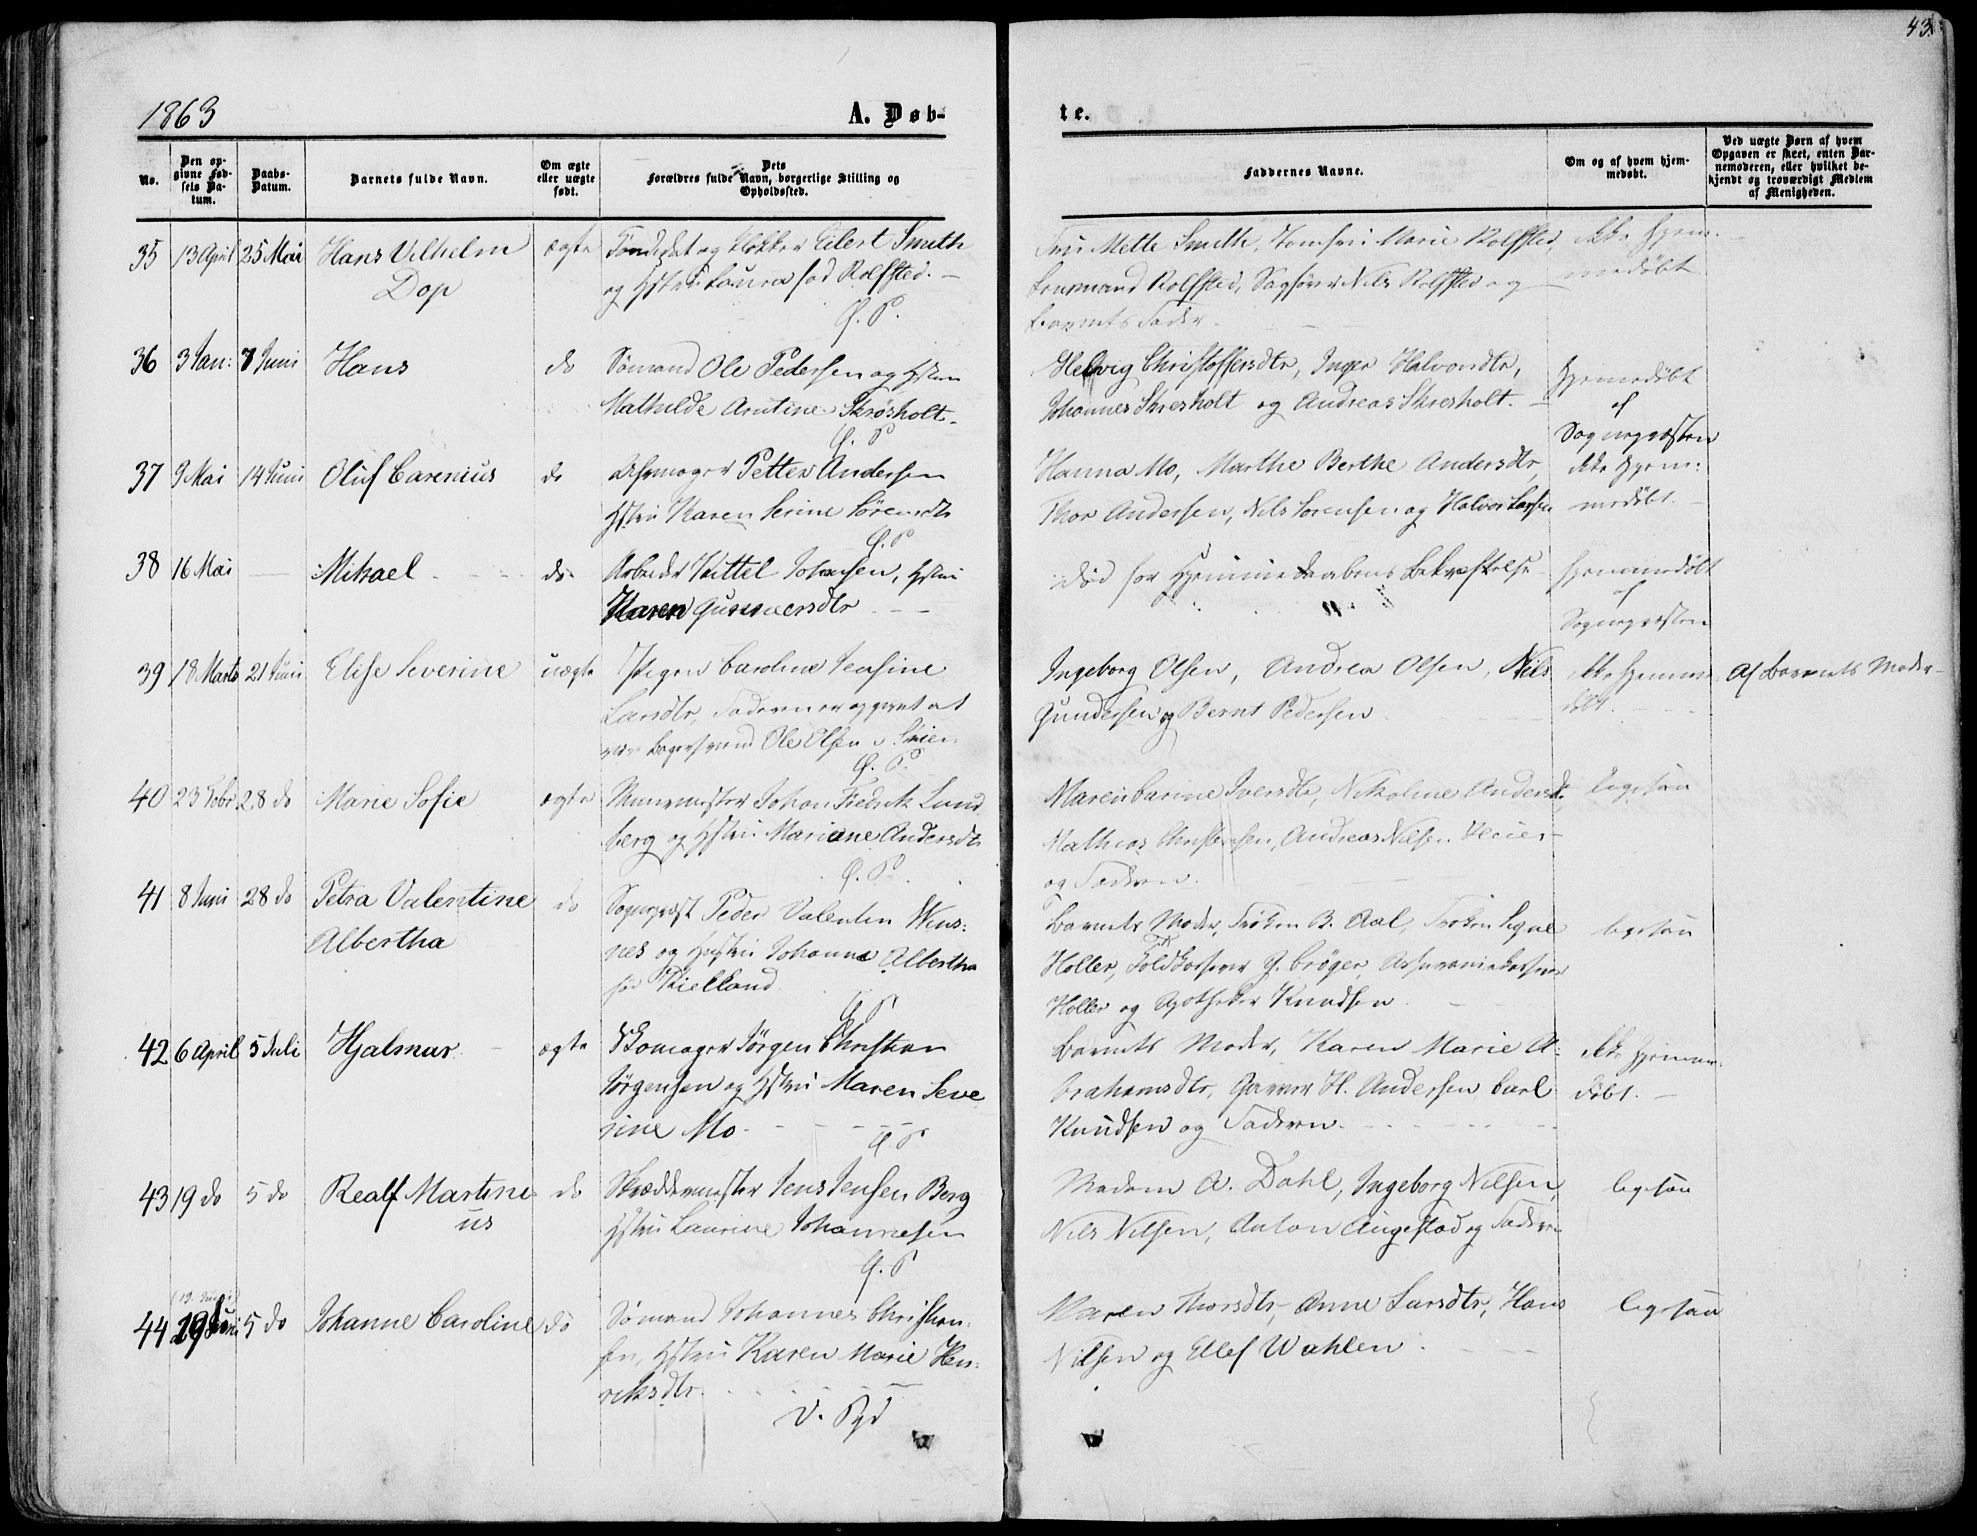 43.
1863
A. Døb-
te.
No.
Den op-
givne Fød-
sels Da-
tum.
Daabs-
Datum.
Barnets fulde Navn.
Om ægte
eller uægte
født.
Dets
Forældres fulde Navn, borgerlige Stilling og
Opholdssted.
Faddernes Navne.
Om og af hvem hjem-
medøbt.
Ved uægte Børn af hvem
Opgaven er skeet, enten Bar-
nemoderen, eller hvilket be-
kjendt og troværdigt Medlem
af Menigheden.
35 13 April 25 Mai Hans Vilhelm
Dop
ægte
og Klokker Eilert Smith
og Hstru Laura fød Rolfsted.
G. P.
Fru Mette Smith, Jomfru Marie Rolfsted,
Lensmand Rolfsted, Sagfører Nils Rolfsted og
Barnets Fader.
ikke Hjem-
medøbt
36 3 Jan: 7 Juni Hans
do
Sømand Ole Pedersen og Hstru
Mathilde Skrøsholt.
G. P
Helvig Christoffersdtr, Inger Halvorsdtr,
Johannes Skresholt og Andreas Skresholt.
Hjemmedøbt
af
Sognepræsten
37 9 Mai 14 Juni Oluf Carenius
do
Petter Andersen
Hstru Karen Serine Sørensdtr
G. P
Hanna Mo, Marthe Berthe Andersdtr,
Thor Andersen, Nils Sørensen og Halvor Larsen
ikke Hjem-
medøbt.
38 16 Mai — Mikael
do
Arbeider Kittel Johnsen, Hstru
Karen Gunnersdtr
Død før Hjemmedaabens Bekræftelse
Hjemmedøbt
af
Sognepræsten
39 18 Marts 21 Juni Elise Severine
uægte
Pigen Caroline Jensine
Larsdtr, Faderen er opgivet at
være Ole Olsen Skien
G. P.
Ingeborg Olsen, Andrea Olsen, Nils
Gundersen og Bernt Pedersen
ikke Hjemme-
døbt.
Af Barnets Moder
40 23 Febr 28 do Marie Sofie
ægte
Muurmester Johan Fredrik Lund
berg og Hstru Mariane Andersdtr
G. P.
Maren Carine Iversdtr, Nikoline Andersdtr
Mathias Christensen, Andreas Nilsen
og Faderen.
ligesaa
41 8 Juni 28 do Petra Valentine
Albertha
do
Sognepræst Peder Valentin Wens-
nes og Hustru Johanne Albertha
fød Kielland
G P
Barnets Moder, Frøken B. Aal, Frøken Signe
Holler, Toldkasserer G. Crøger, Assurancekasserer
Holler og Apotheker Knudsen
ligesaa
42 6 April 5 Juli Hjalmar
ægte
Skomager Jørgen Christian
Jørgensen og Hstru Maren Seve
rine Mo
G P
Barnets Moder, Karen Marie A-
brahamsdtr, Garver H. Andersen Carl
Knudsen og Faderen
ikke Hjemme-
døbt.
43 19 do 5 do Realf Martini
us
do
Skræddermester Jens Jensen Berg
Hstru Laurine Johannesen
G. P
Madam A. Dahl, Ingeborg Nilsen,
Nils Nilsen, Anton Augestad og Faderen
ligesaa
44 19 Juni 5 do Johanne Caroline
do
Sømand Johannes Christian-
sen, Hstru Karen Marie Hen-
riksdtr.
Maren Thorsdtr, Anne Larsdtr, Hans
Nilsen og Ellef Wahlen
ligesaa